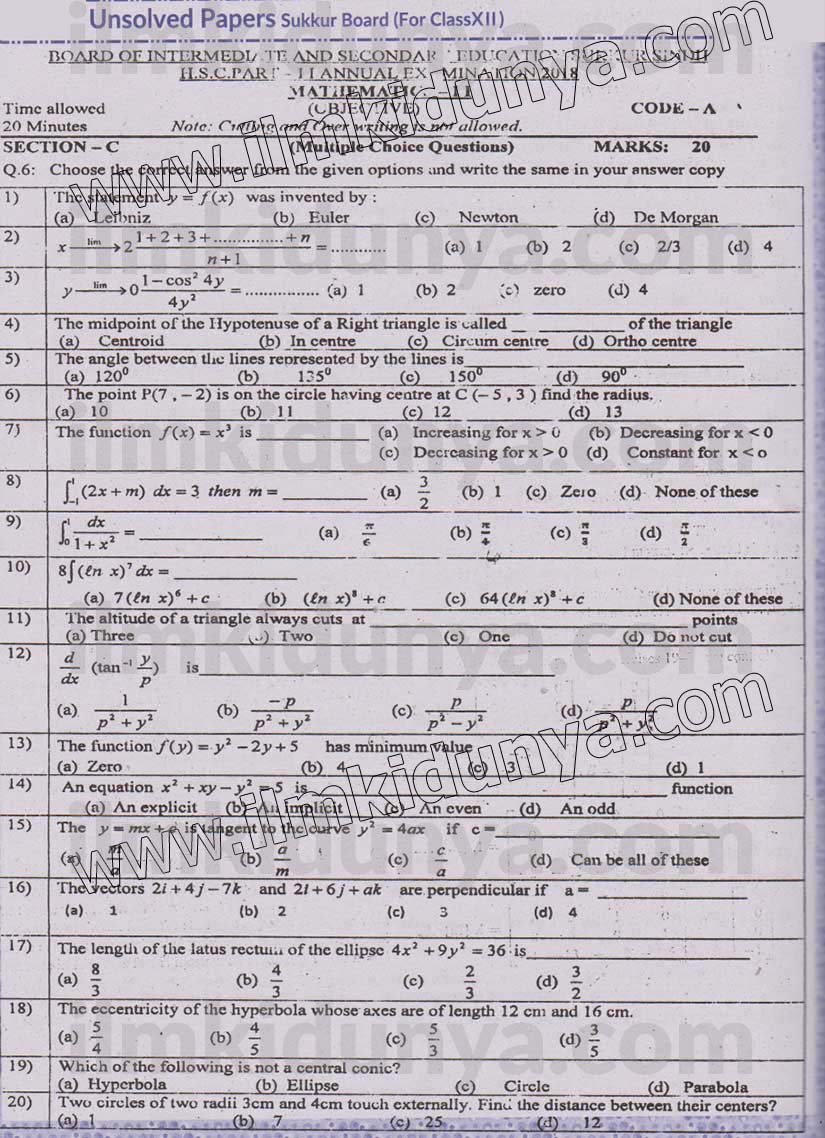 Unsolved Papers Sukkur Board (For ClassXII)
BOARD OF INTERMEDIATE AND SECONDARY EDUCATION SUKKUR SINDH
H.S.C.PART - II ANNUAL EXAMINATION 2018
MATHEMATICS - II
Time allowed (OBJECTIVE) CODE – A
20 Minutes Note: Cutting and Over writing is not allowed.
SECTION – C (Multiple Choice Questions) MARKS: 20
Q.6: Choose the correct answer from the given options and write the same in your answer copy
1) The statement y = f(x) was invented by :
(a) Leibniz (b) Euler (c) Newton (d) De Morgan
2) x lim→ 2 (1 + 2 + 3 + ............... + n)/(n + 1) = ............ (a) 1 (b) 2 (c) 2/3 (d) 4
3) y lim→ 0 (1 – cos² 4y)/(4y²) = ................ (a) 1 (b) 2 (c) zero (d) 4
4) The midpoint of the Hypotenuse of a Right triangle is called __ __________ of the triangle
(a) Centroid (b) In centre (c) Circum centre (d) Ortho centre
5) The angle between the lines represented by the lines is__________ __________
(a) 120⁰ (b) 135⁰ (c) 150⁰ (d) 90⁰
6) The point P(7 , – 2) is on the circle having centre at C (– 5 , 3 ) find the radius.
(a) 10 (b) 11 (c) 12 (d) 13
7) The function f(x) = x³ is __________ (a) Increasing for x > 0 (b) Decreasing for x < 0
(c) Decreasing for x > 0 (d) Constant for x < o
8) ∫₋₁¹ (2x + m) dx = 3 then m = ________ (a) 3/2 (b) 1 (c) Zero (d) None of these
9) ∫₀¹ dx/(1 + x²) = __________ (a) π/6 (b) π/4 (c) π/3 (d) π/2
10) 8∫(ℓn x)⁷ dx = __________
(a) 7(ℓn x)⁶ + c (b) (ℓn x)⁸ + c (c) 64(ℓn x)⁸ + c (d) None of these
11) The altitude of a triangle always cuts at __________ points
(a) Three Two (c) One (d) Do not cut
12) d/dx (tan⁻¹ y/p) is__________
(a) 1/(p² + y²) (b) –p/(p² + y²) (c) p/(p² – y²) (d) p/(p² + y²)
13) The function f(y) = y² – 2y + 5 has minimum value
(a) Zero (b) 4 (c) 3 (d) 1
14) An equation x² + xy – y² = 5 is__________ function
(a) An explicit (b) An implicit (c) An even (d) An odd
15) The y = mx + c is tangent to the curve y² = 4ax if c = __________
(a) m/a (b) a/m (c) c/a (d) Can be all of these
16) The vectors 2i + 4j – 7k and 2i + 6j + ak are perpendicular if a = __________
(a) 1 (b) 2 (c) 3 (d) 4
17) The length of the latus rectum of the ellipse 4x² + 9y² = 36 is__________
(a) 8/3 (b) 4/3 (c) 2/3 (d) 3/2
18) The eccentricity of the hyperbola whose axes are of length 12 cm and 16 cm.
(a) 5/4 (b) 4/5 (c) 5/3 (d) 3/5
19) Which of the following is not a central conic?
(a) Hyperbola (b) Ellipse (c) Circle (d) Parabola
20) Two circles of two radii 3cm and 4cm touch externally. Find the distance between their centers?
(a) 1 (b) 7 (c) 25 (d) 12
www.ilmkidunya.com
www.ilmkidunya.com
ilmkidunya.com
ilmkidunya.com
ilmkidunya.com
ilmkidunya.com
ilmkidunya.com
ilmkidunya.com